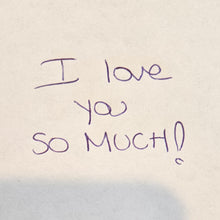 I love
you
SO MUCH!